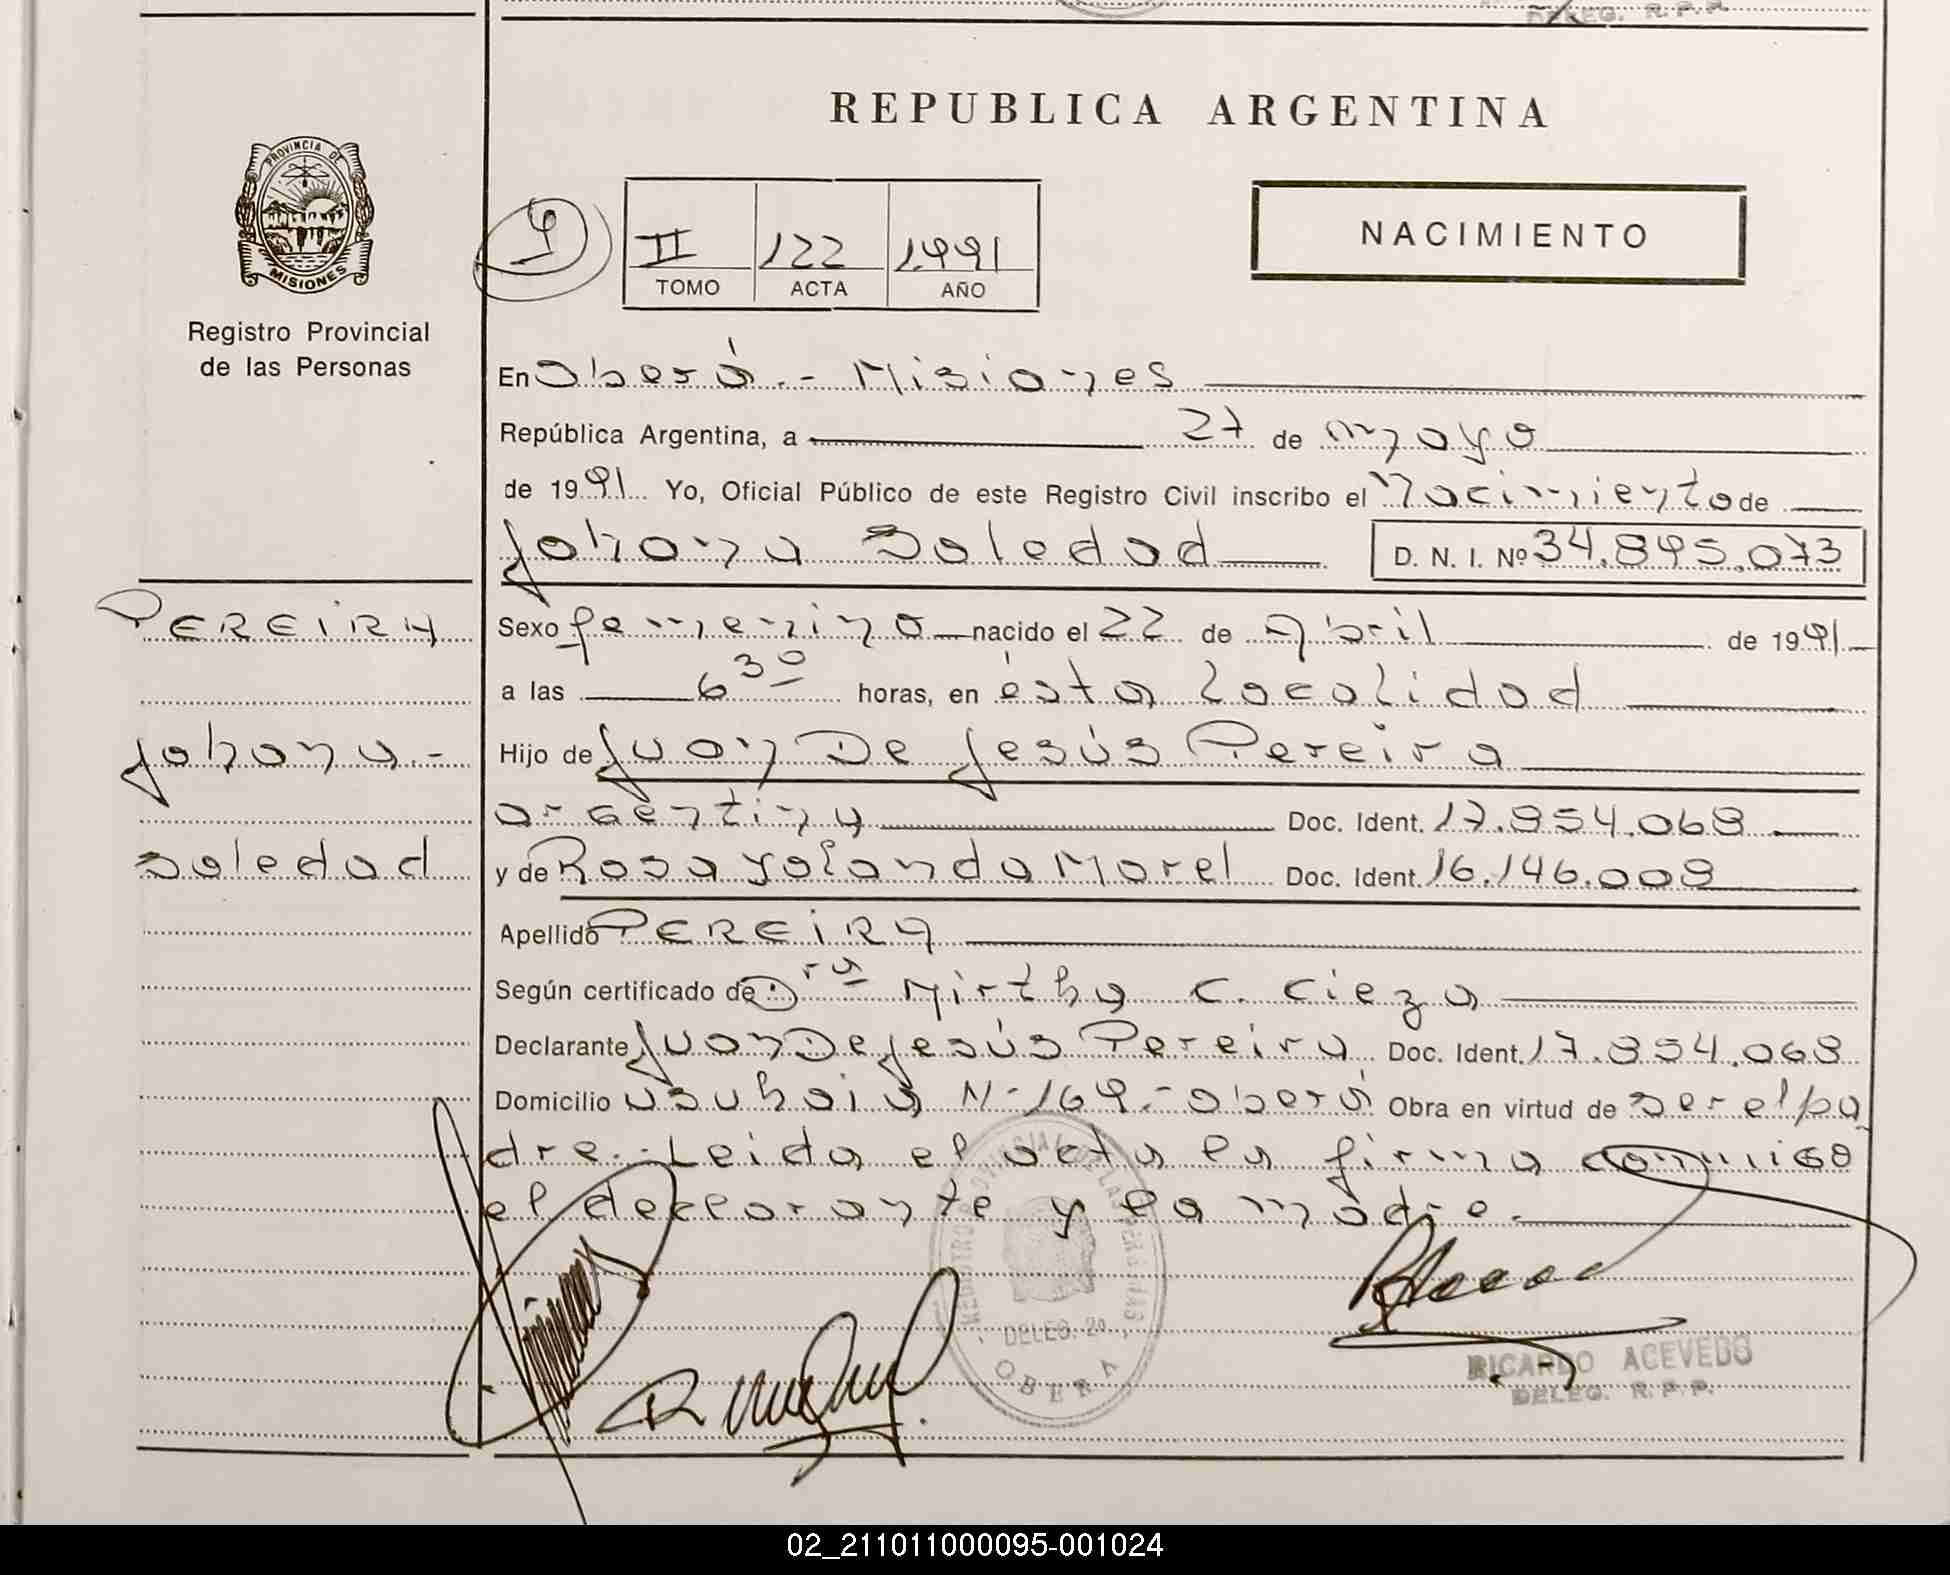 DELEG. R.P.P.
REPUBLICA ARGENTINA
PROVINCIA DE
MISIONES
Registro Provincial
de las Personas
9
II 122 1991
TOMO ACTA AÑO
NACIMIENTO
En Oberá.- Misiones
República Argentina, a 27 de mayo
de 1991 Yo, Oficial Público de este Registro Civil inscribo el Nacimiento de
Johana Soledad D. N. I. Nº 34.895.073
PEREIRA
Johana.-
Soledad
Sexo femenino nacido el 22 de Abril de 1991
a las 6 30 horas, en ésta Localidad
Hijo de Juan De Jesús Pereira
argentina Doc. Ident. 17.854.068
y de Rosa Yolanda Morel Doc. Ident. 16.146.008
Apellido PEREIRA
Según certificado de Dra Mirtha C. Cieza
Declarante Juan De Jesús Pereira Doc. Ident. 17.854.068
Domicilio Usuhaia N-169.- Oberá Obra en virtud de ser el pa
dre.- Leida el acta la firma conmigo
el declarante y la madre.
REGISTRO PROVINCIAL DE LAS PERSONAS
DELEG. 20
OBERA
RICARDO ACEVEDO
DELEG. R.P.P.
02_211011000095-001024